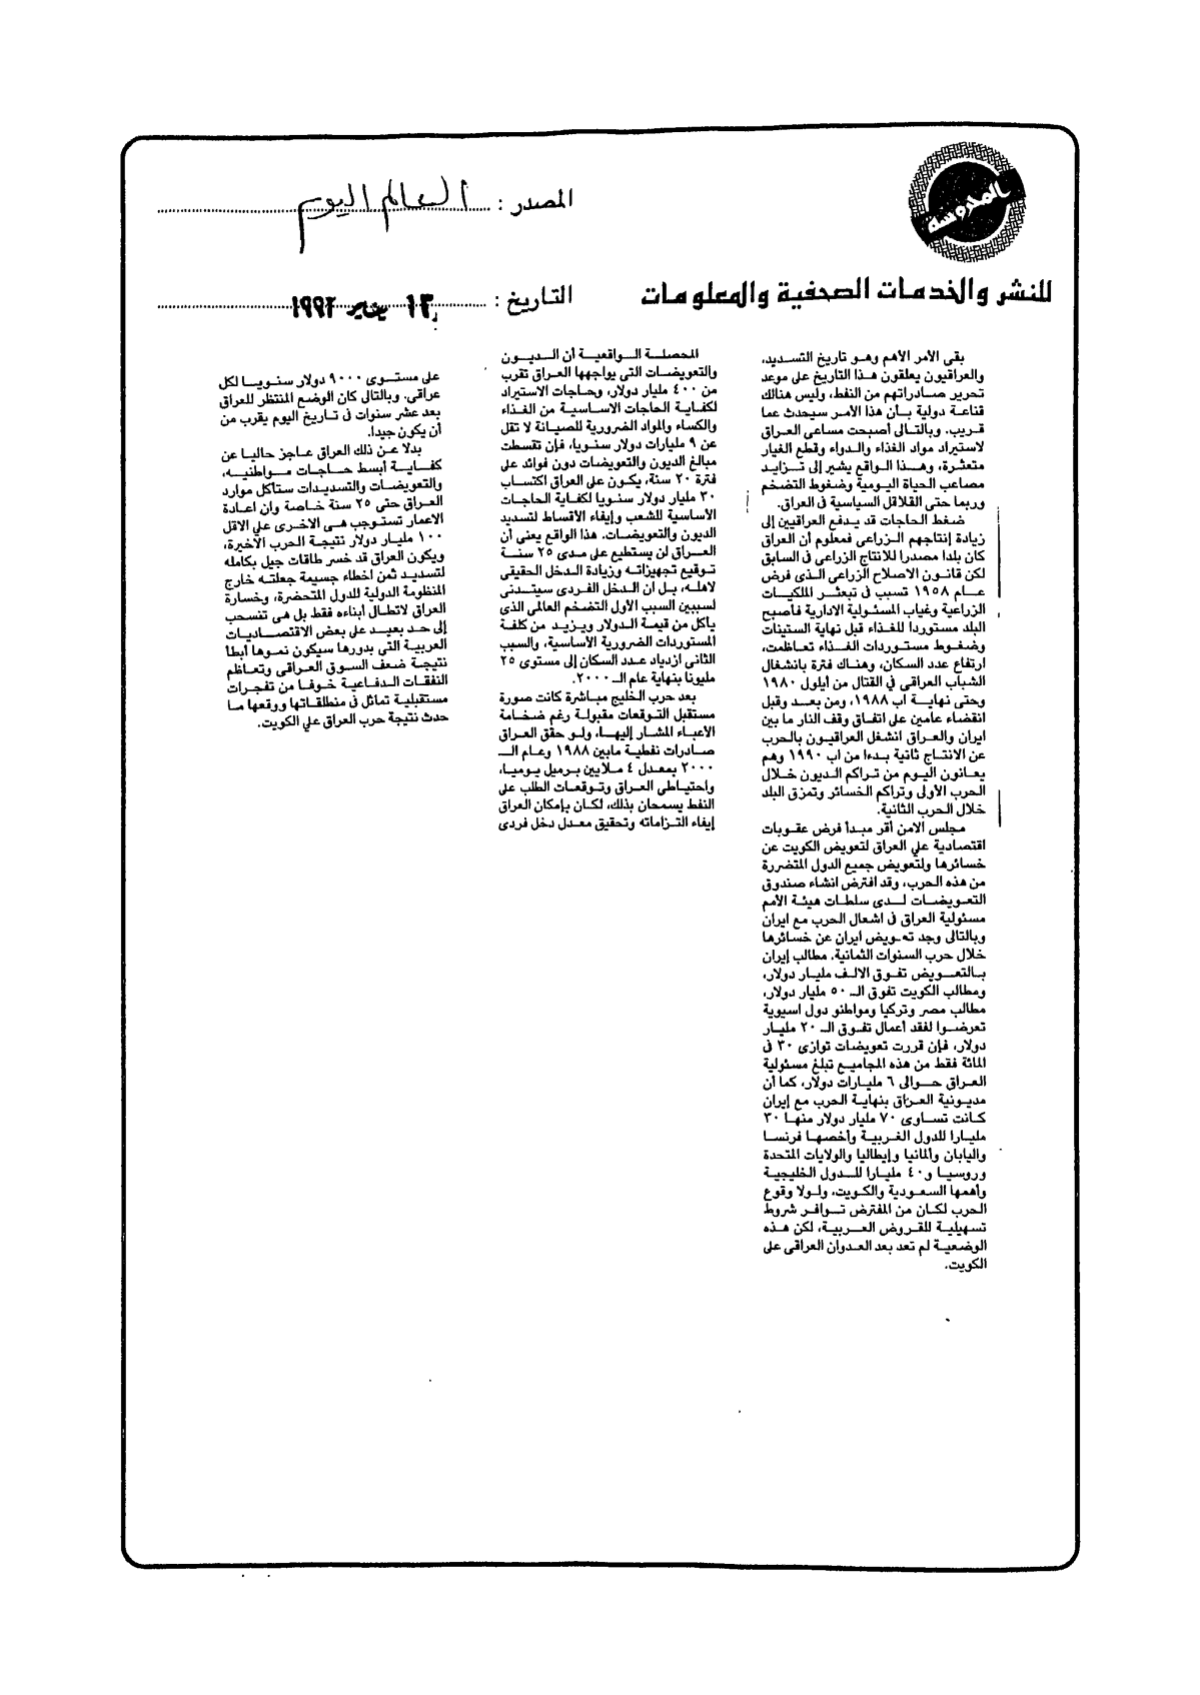 المحروسة
المصدر : العالم اليوم
للنشر والخدمات الصحفية والمعلومات
التاريخ : ١٣ يناير ١٩٩٢
بقى الأمر الأهم وهو تاريخ التسديد،
والعراقيون يعلقون هذا التاريخ على موعد
تحرير صادراتهم من النفط، وليس هنالك
قناعة دولية بأن هذا الأمر سيحدث عما
قريب. وبالتالى أصبحت مساعى العراق
لاستيراد مواد الغذاء والدواء وقطع الغيار
متعثرة، وهذا الواقع يشير إلى تزايد
مصاعب الحياة اليومية وضغوط التضخم
وربما حتى القلاقل السياسية فى العراق.
ضغط الحاجات قد يدفع العراقيين إلى
زيادة إنتاجهم الزراعى فمعلوم أن العراق
كان بلدا مصدرا للانتاج الزراعى فى السابق
لكن قانون الاصلاح الزراعى الذى فرض
عام ١٩٥٨ تسبب فى تبعثر الملكيات
الزراعية وغياب المسئولية الادارية فأصبح
البلد مستوردا للغذاء قبل نهاية الستينات
وضغوط مستوردات الغذاء تعاظمت،
ارتفاع عدد السكان، وهناك فترة بانشغال
الشباب العراقى فى القتال من أيلول ١٩٨٠
وحتى نهاية اب ١٩٨٨، ومن بعد وقبل
انقضاء عامين على اتفاق وقف النار ما بين
ايران والعراق انشغل العراقيون بالحرب
عن الانتاج ثانية بدءا من اب ١٩٩٠ وهم
يعانون اليوم من تراكم الديون خلال
الحرب الأولى وتراكم الخسائر وتمزق البلد
خلال الحرب الثانية.
مجلس الامن أقر مبدأ فرض عقوبات
اقتصادية على العراق لتعويض الكويت عن
خسائرها ولتعويض جميع الدول المتضررة
من هذه الحرب، وقد افترض انشاء صندوق
التعويضات لدى سلطات هيئة الأمم
مسئولية العراق فى اشعال الحرب مع ايران
وبالتالى وجد تعويض ايران عن خسائرها
خلال حرب السنوات الثمانية. مطالب إيران
بالتعويض تفوق الالف مليار دولار،
ومطالب الكويت تفوق الـ ٥٠ مليار دولار،
مطالب مصر وتركيا ومواطنو دول اسيوية
تعرضوا لفقد أعمال تفوق الـ ٢٠ مليار
دولار، فإن قررت تعويضات توازى ٣٠ فى
المائة فقط من هذه المجاميع تبلغ مسئولية
العراق حوالى ٦ مليارات دولار، كما أن
مديونية العراق بنهاية الحرب مع إيران
كانت تساوى ٧٠ مليار دولار منها ٣٠
مليارا للدول الغربية وأخصها فرنسا
واليابان وألمانيا وإيطاليا والولايات المتحدة
وروسيا و٤٠ مليارا للدول الخليجية
وأهمها السعودية والكويت، ولولا وقوع
الحرب لكان من المفترض توافر شروط
تسهيلية للقروض العربية، لكن هذه
الوضعية لم تعد بعد العدوان العراقى على
الكويت.
المحصلة الواقعية أن الديون
والتعويضات التى يواجهها العراق تقرب
من ٤٠٠ مليار دولار، وحاجات الاستيراد
لكفاية الحاجات الاساسية من الغذاء
والكساء والمواد الضرورية للصيانة لا تقل
عن ٩ مليارات دولار سنويا، فإن تقسطت
مبالغ الديون والتعويضات دون فوائد على
فترة ٢٠ سنة، يكون على العراق اكتساب
٣٠ مليار دولار سنويا لكفاية الحاجات
الأساسية للشعب وإيفاء الأقساط لتسديد
الديون والتعويضات. هذا الواقع يعنى أن
العراق لن يستطيع على مدى ٢٥ سنة
توقيع تجهيزاته وزيادة الدخل الحقيقى
لاهله، بل أن الدخل الفردى سيتدنى
لسببين السبب الأول التضخم العالمى الذى
يأكل من قيمة الدولار ويزيد من كلفة
المستوردات الضرورية الأساسية، والسبب
الثانى ازدياد عدد السكان إلى مستوى ٢٥
مليونا بنهاية عام الـ ٢٠٠٠.
بعد حرب الخليج مباشرة كانت صورة
مستقبل التوقعات مقبولة رغم ضخامة
الأعباء المشار إليها، ولو حقق العراق
صادرات نفطية مابين ١٩٨٨ وعام الـ
٢٠٠٠ بمعدل ٤ ملايين برميل يوميا،
واحتياطى العراق وتوقعات الطلب على
النفط يسمحان بذلك، لكان بإمكان العراق
إيفاء التزاماته وتحقيق معدل دخل فردى
على مستوى ٩٠٠٠ دولار سنويا لكل
عراقى. وبالتالى كان الوضع المنتظر للعراق
بعد عشر سنوات فى تاريخ اليوم يقرب من
أن يكون جيدا.
بدلا عن ذلك العراق عاجز حاليا عن
كفاية أبسط حاجات مواطنيه،
والتعويضات والتسديدات ستأكل موارد
العراق حتى ٢٥ سنة خاصة وان اعادة
الاعمار تستوجب هى الاخرى على الاقل
١٠٠ مليار دولار نتيجة الحرب الأخيرة،
ويكون العراق قد خسر طاقات جيل بكامله
لتسديد ثمن اخطاء جسيمة جعلته خارج
المنظومة الدولية للدول المتحضرة، وخسارة
العراق لاتطال أبناءه فقط بل هى تنسحب
إلى حد بعيد على بعض الاقتصاديات
العربية التى بدورها سيكون نموها أبطأ
نتيجة ضعف السوق العراقى وتعاظم
النفقات الدفاعية خوفا من تفجرات
مستقبلية تماثل فى منطلقاتها ووقعها ما
حدث نتيجة حرب العراق على الكويت.